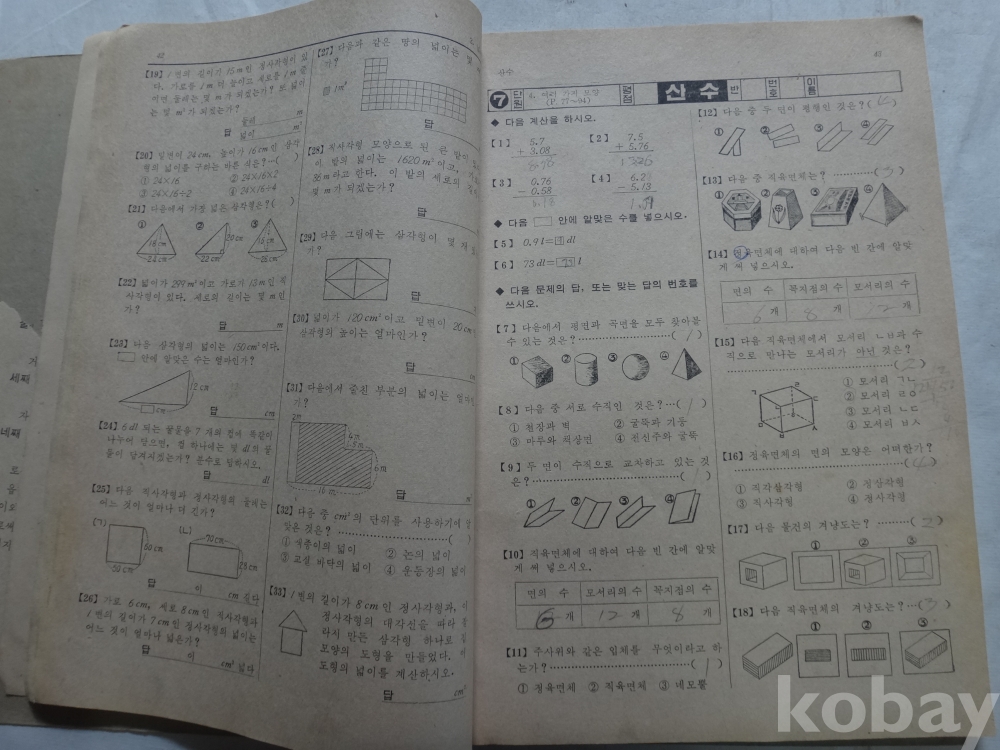 42
【19】 1변의 길이가 15m인 정사각형이 있
다. 가로를 1m 더 늘이고 세로를 1m 줄
이면 둘레는 몇 m가 되겠는가? 또 넓이
는 몇 m²가 되겠는가?
둘레 m
답 넓이 m²
【20】 밑변이 24cm, 높이가 16cm인 삼각
형의 넓이를 구하는 바른 식은?…( )
① 24×16 ② 24×16×2
③ 24×16÷2 ④ 24×16÷4
【21】 다음에서 가장 넓은 삼각형은?( )
① ② ③
16cm 20cm 16cm
24cm 22cm
【22】 넓이가 299m²이고 가로가 13m인 직
사각형이 있다. 세로의 길이는 몇 m인
가?
답 m
【23】 다음 삼각형의 넓이는 150cm²이다.
□ 안에 알맞은 수는 얼마인가?
12cm
□cm
답 cm
【24】 6dl 되는 꿀물을 7개의 컵에 똑같이
나누어 담으면, 컵 하나에는 몇 dl의 꿀
물이 담겨지겠는가? 분수로 답하시오.
답 dl
【25】 다음 직사각형과 정사각형의 둘레는
어느 것이 얼마나 더 긴가?
(ㄱ) (ㄴ)
70cm
50cm
답 이 cm 길다
【26】 가로 6cm, 세로 8cm인 직사각형과
1변의 길이가 7cm인 정사각형의 넓이는
어느 것이 얼마나 넓은가?
답 이 cm² 넓다
【27】 다음과 같은 땅의 넓이는 몇
가?
1m²
답
【28】 직사각형 모양으로 된 밭이
이 밭의 넓이는 1620m²이고,
m라고 한다. 이 밭의 세로의
몇 m가 되겠는가?
답
【29】 다음 그림에는 삼각형이 몇 개
가?
답
【30】 넓이가 120cm²이고 밑변이 20cm
삼각형의 높이는 얼마인가?
답 cm
【31】 다음에서 줄친 부분의 넓이는 얼마
가?
4m
8m
6m
16m
답 m²
【32】 다음 중 cm²의 단위를 사용하기에 알
맞은 것은? ………( )
① 색종이의 넓이 ② 논의 넓이
③ 교실 바닥의 넓이 ④ 운동장의 넓이
【33】 1변의 길이가 8cm인 정사각형과,
정사각형의 대각선을 따라
라서 만든 삼각형 하나로
모양의 도형을 만들었다.
도형의 넓이를 계산하시오.
답 cm²
43
산수
⑦ 단원 4. 여러 가지 모양
(P.77~94) 월 일 산수 반 번호 이름
◆ 다음 계산을 하시오.
【1】 5.7 【2】 7.5
+ 3.08 + 5.76
【3】 0.76 【4】 6.2
− 0.58 − 5.13
◆ 다음 □ 안에 알맞은 수를 넣으시오.
【5】 0.9l=□dl
【6】 73dl=□l
◆ 다음 문제의 답, 또는 맞는 답의 번호를
쓰시오.
【7】 다음에서 평면과 곡면을 모두 찾아볼
수 있는 것은? ………( 1 )
① ② ③ ④
【8】 다음 중 서로 수직인 것은?…( 1 )
① 천장과 벽 ② 굴뚝과 기둥
③ 마루와 책상면 ④ 전신주와 굴뚝
【9】 두 면이 수직으로 교차하고 있는 것
은? ………( )
① ② ③ ④
【10】 직육면체에 대하여 다음 빈 간에 알맞
게 써 넣으시오.
면의 수 모서리의 수 꼭지점의 수
6 개 12 개 8 개
【11】 주사위와 같은 입체를 무엇이라고 하
는가? ………( 1 )
① 정육면체 ② 직육면체 ③ 네모뿔
【12】 다음 중 두 면이 평행인 것은?( )
① ② ③ ④
【13】 다음 중 직육면체는? ………( 3 )
① ② ③ ④
【14】 직육면체에 대하여 다음 빈 간에 알맞
게 써 넣으시오.
면의 수 꼭지점의 수 모서리의 수
6 개 8 개 12 개
【15】 다음 직육면체에서 모서리 ㄴㅂ과 수
직으로 만나는 모서리가 아닌 것은?
………( 2 )
① 모서리 ㄱㄴ
② 모서리 ㄹㅇ
③ 모서리 ㄴㄷ
④ 모서리 ㅂㅅ
【16】 정육면체의 면의 모양은 어떠한가?
………( 4 )
① 직각삼각형 ② 정삼각형
③ 직사각형 ④ 정사각형
【17】 다음 물건의 겨냥도는? ………( 2 )
① ② ③
【18】 다음 직육면체의 겨냥도는?…( 3 )
① ② ③
kobay